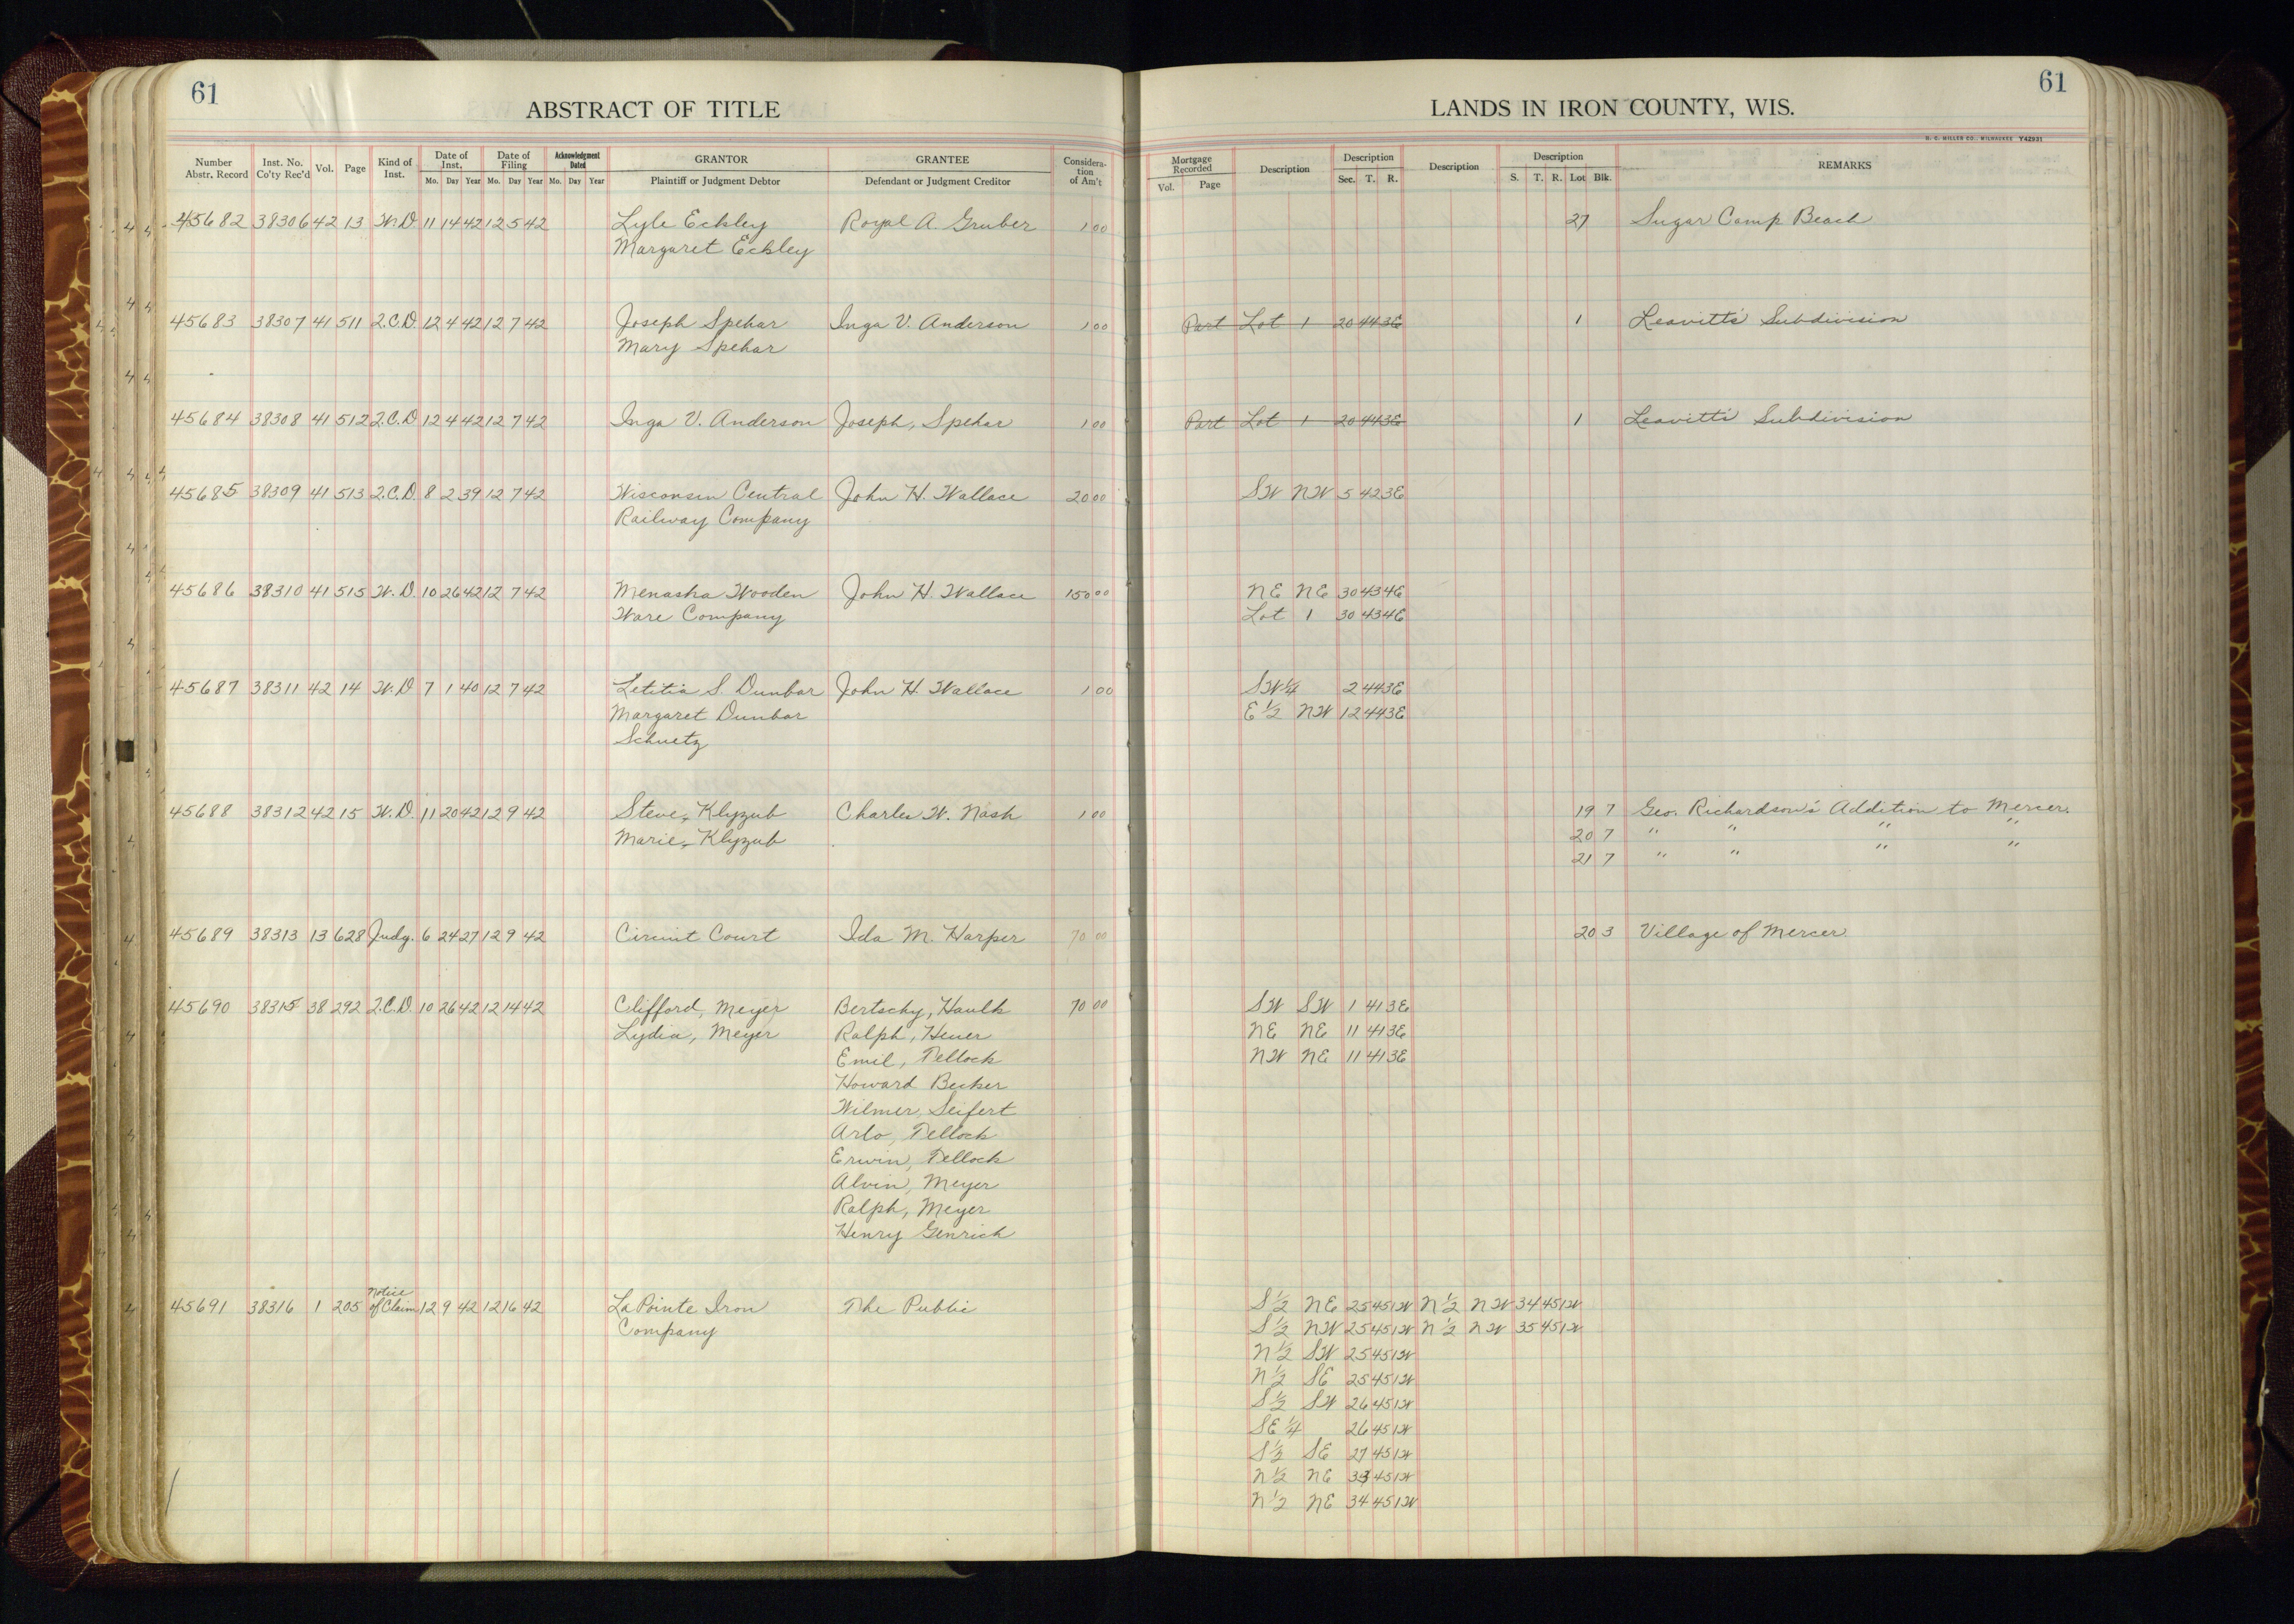 61
ABSTRACT OF TITLE
Number Abstr. Record | Inst. No. Co'ty Rec'd | Vol. | Page | Kind of Inst. | Date of Inst. Mo. Day Year | Date of Filing Mo. Day Year | Acknowledgment Dated Mo. Day Year | GRANTOR Plaintiff or Judgment Debtor | GRANTEE Defendant or Judgment Creditor | Considera- tion of Am't
45682 38306 42 13 W.D. 11 14 42 12 5 42 Lyle Eckley Royal A. Gruber 1 00
Margaret Eckley
45683 38307 41 511 Q.C.D. 12 4 42 12 7 42 Joseph Spehar Inga V. Anderson 1 00
Mary Spehar
45684 38308 41 512 Q.C.D. 12 4 42 12 7 42 Inga V. Anderson Joseph, Spehar 1 00
45685 38309 41 513 Q.C.D. 8 2 39 12 7 42 Wisconsin Central John H. Wallace 20 00
Railway Company
45686 38310 41 515 W.D. 10 26 42 12 7 42 Menasha Wooden John H. Wallace 150 00
Ware Company
45687 38311 42 14 W.D 7 1 40 12 7 42 Letitia S. Dunbar John H. Wallace 1 00
Margaret Dunbar
Schuetz
45688 38312 42 15 W.D. 11 20 42 12 9 42 Steve, Klyzub Charles W. Nash 1 00
Marie, Klyzub
45689 38313 13 628 Judg. 6 24 27 12 9 42 Circuit Court Ida M. Harper 70 00
45690 38315 38 292 Q.C.D. 10 26 42 12 14 42 Clifford, Meyer Bertschy, Haulk 70 00
Lydia, Meyer Ralph, Heuer
Emil, Tellock
Howard Becker
Wilmer, Seifert
Arlo, Tellock
Erwin, Tellock
Alvin, Meyer
Ralph, Meyer
Henry Genrich
45691 38316 1 205 Notice of Claim 12 9 42 12 16 42 LaPointe Iron The Public
Company
61
LANDS IN IRON COUNTY, WIS.
H. C. MILLER CO., MILWAUKEE Y42931
Mortgage Recorded Vol. Page | Description | Description Sec. T. R. | Description | Description S. T. R. Lot Blk. | REMARKS
27 Sugar Camp Beach
Part Lot 1 20 44 3E 1 Leavitt's Subdivision
Part Lot 1 20 44 3E 1 Leavitt's Subdivision
SW NW 5 42 3E
NE NE 30 43 4E
Lot 1 30 43 4E
SW¼ 2 44 3E
E½ NW 12 44 3E
19 7 Geo. Richardson's Addition to Mercer.
20 7 " " " "
21 7 " " " "
20 3 Village of Mercer.
SW SW 1 41 3E
NE NE 11 41 3E
NW NE 11 41 3E
S½ NE 25 45 1W N½ NW 34 45 1W
S½ NW 25 45 1W N½ NW 35 45 1W
N½ SW 25 45 1W
N½ SE 25 45 1W
S½ SW 26 45 1W
SE¼ 26 45 1W
S½ SE 27 45 1W
N½ NE 33 45 1W
N½ NE 34 45 1W